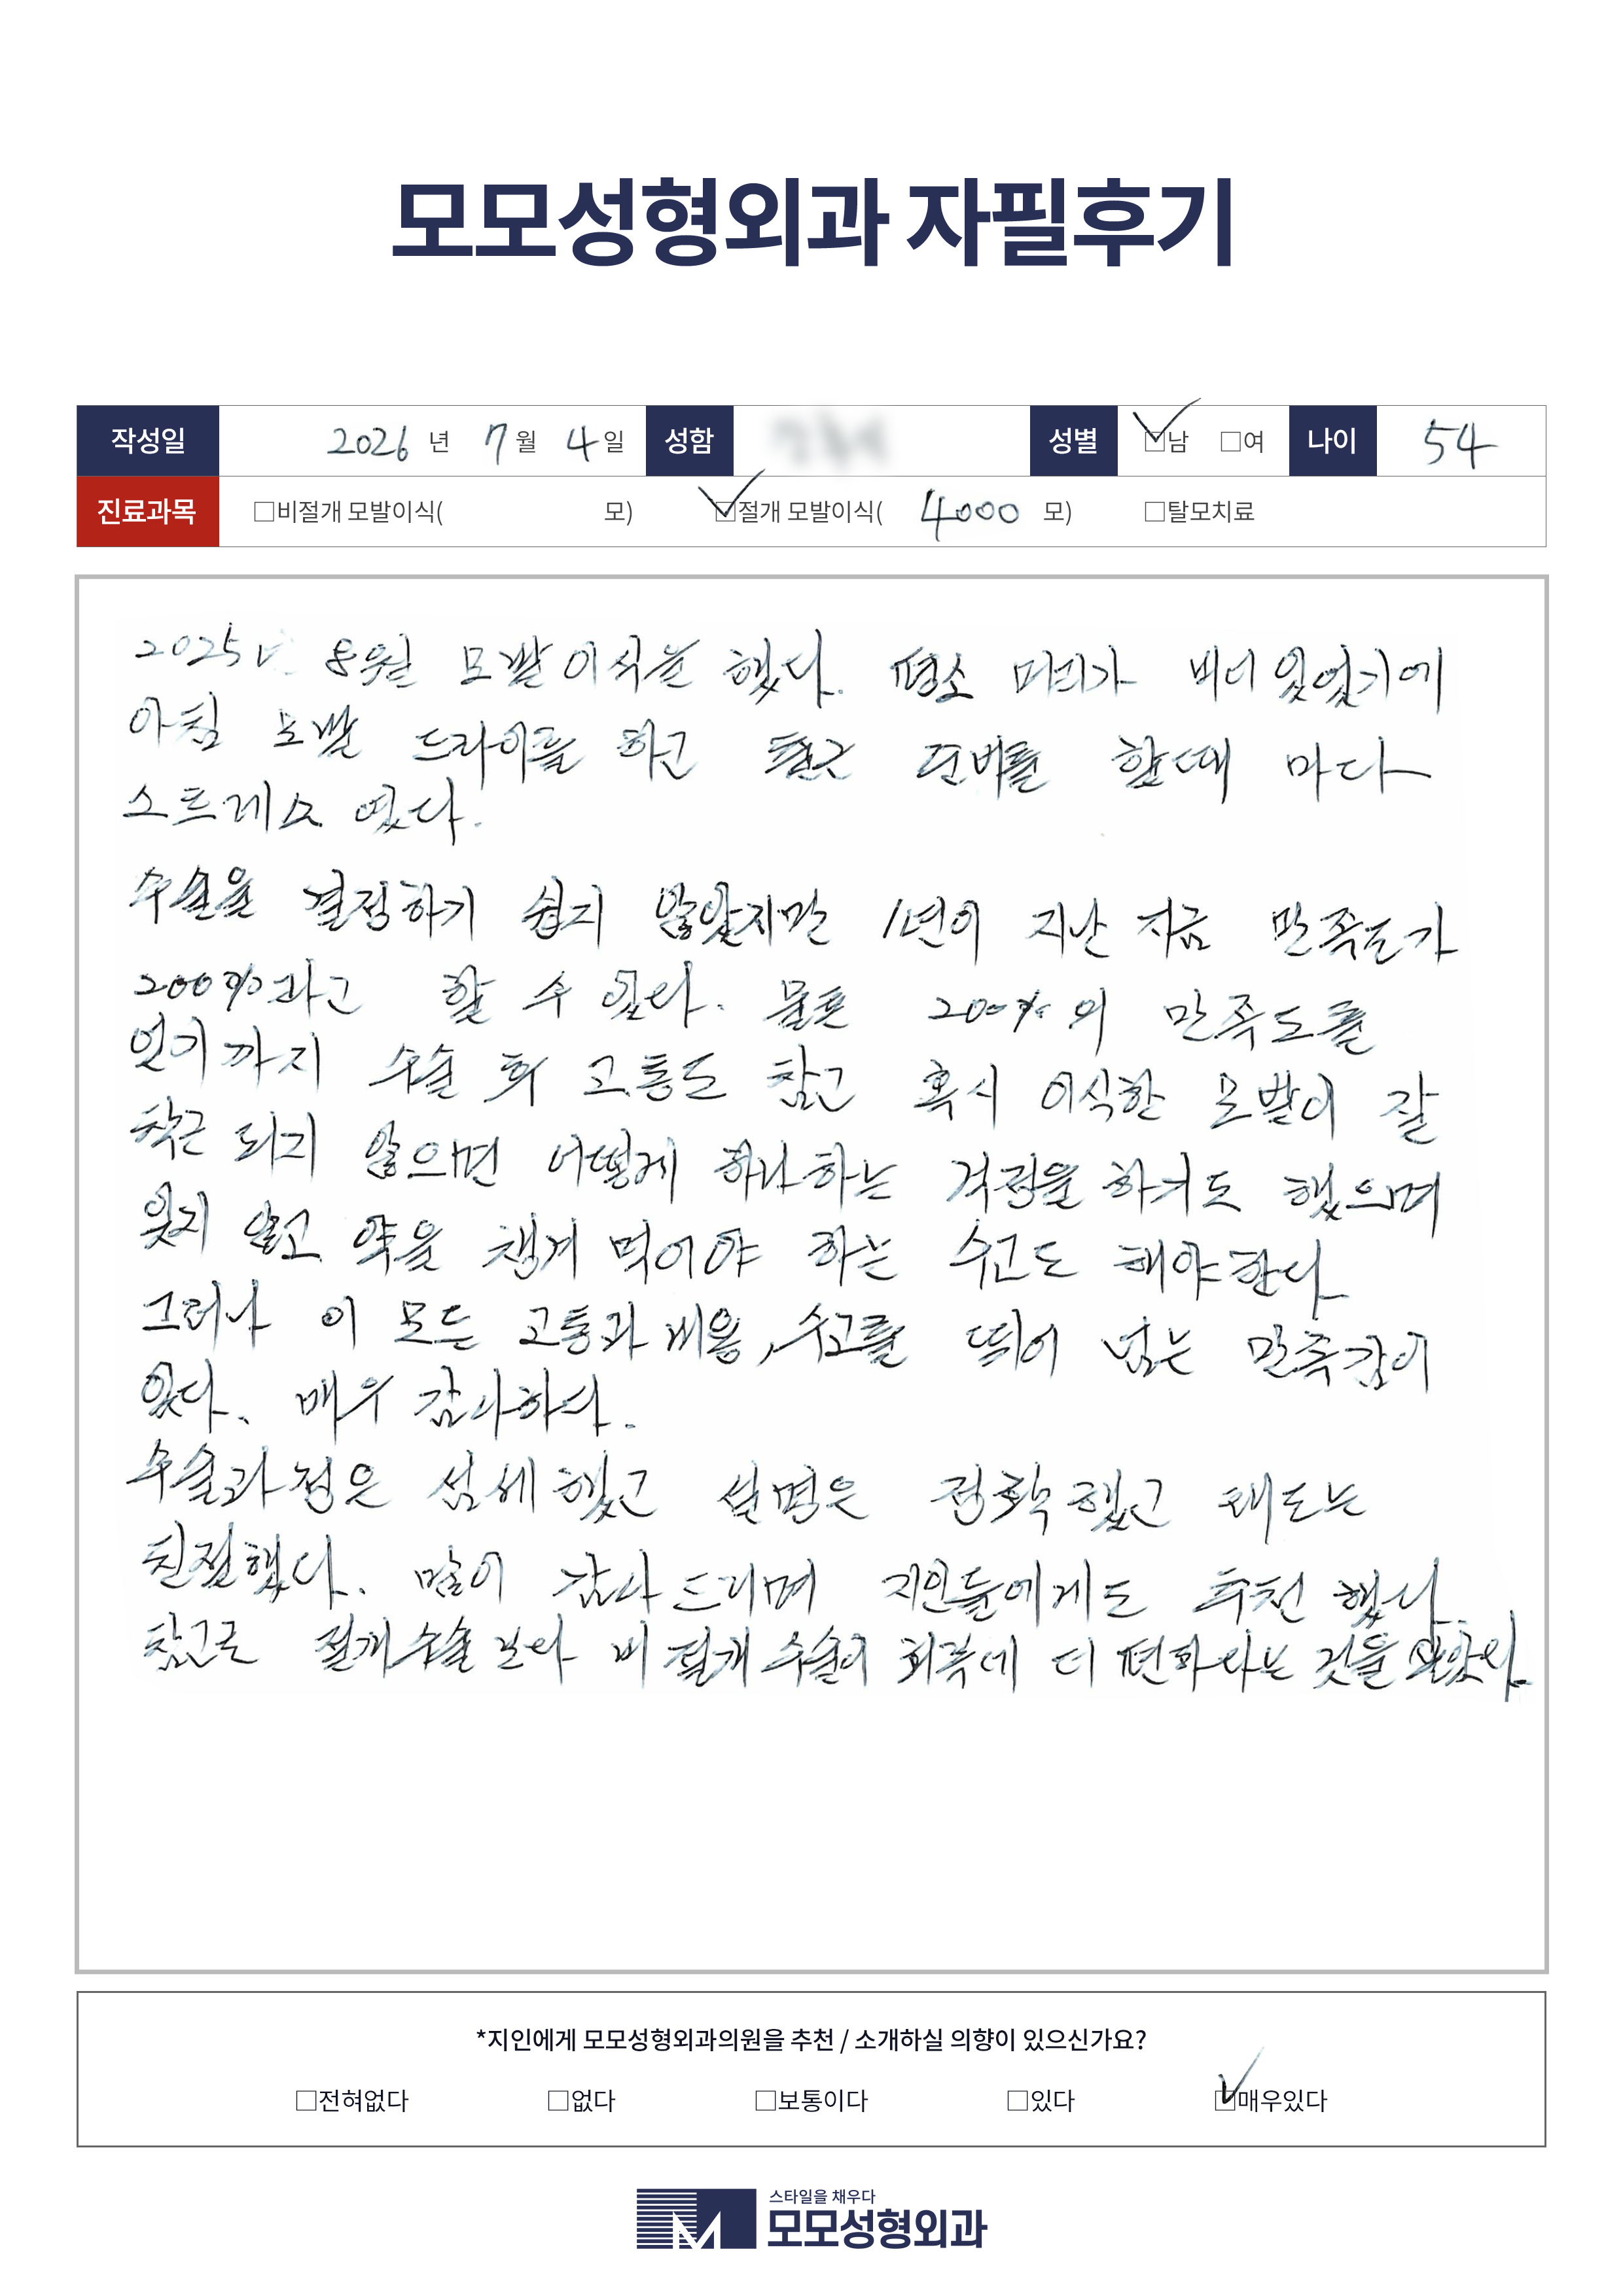 모모성형외과 자필후기
작성일 2026 년 7 월 4 일 성함 성별 ☑남 □여 나이 54
진료과목 □비절개 모발이식( 모) ☑절개 모발이식( 4000 모) □탈모치료
2025년 8월 모발이식을 했다. 평소 머리가 비어있었기에
아침 모발 드라이를 하고 출근 준비를 할때 마다
스트레스 였다.
수술을 결정하기 쉽지 않았지만 1년이 지난 지금 만족도가
200%라고 할 수 있다. 물론 200%의 만족도를
얻기까지 수술 후 고통도 참고 혹시 이식한 모발이 잘
착근 되지 않으면 어떻게 하나하는 걱정을 하기도 했으며
잊지 않고 약을 챙겨 먹어야 하는 수고도 해야한다
그러나 이 모든 고통과 비용, 수고를 뛰어 넘는 만족감이
있다. 매우 감사하다.
수술과정은 섬세했고 설명은 정확했고 태도는
친절했다. 많이 감사드리며 지인들에게도 추천 했다.
참고로 절개수술보다 비절개수술이 회복에 더 편하다는 것을 알았다.
*지인에게 모모성형외과의원을 추천 / 소개하실 의향이 있으신가요?
□전혀없다 □없다 □보통이다 □있다 ☑매우있다
스타일을 채우다
모모성형외과